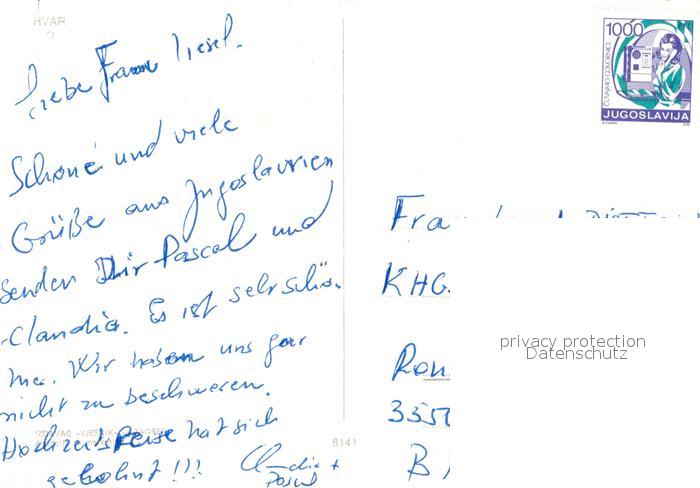 HVAR
Liebe Frau Liesel.
Schöne und viele
Grüße aus Jugoslavien
Senden Dir Pascal und
Claudia. Es ist sehr schö-
ne. Wir haben uns gar
nicht zu beschweren.
Hochzeitsreise hat sich
gelohnt !!! Claudia +
Pascal
8141
1000
ČUVAJMO GOVORNICE
JUGOSLAVIJA
Frau
KHG.
privacy protection
Datenschutz